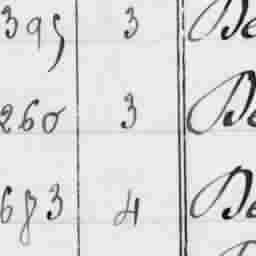 395 3 De
260 3 De
683 4 De